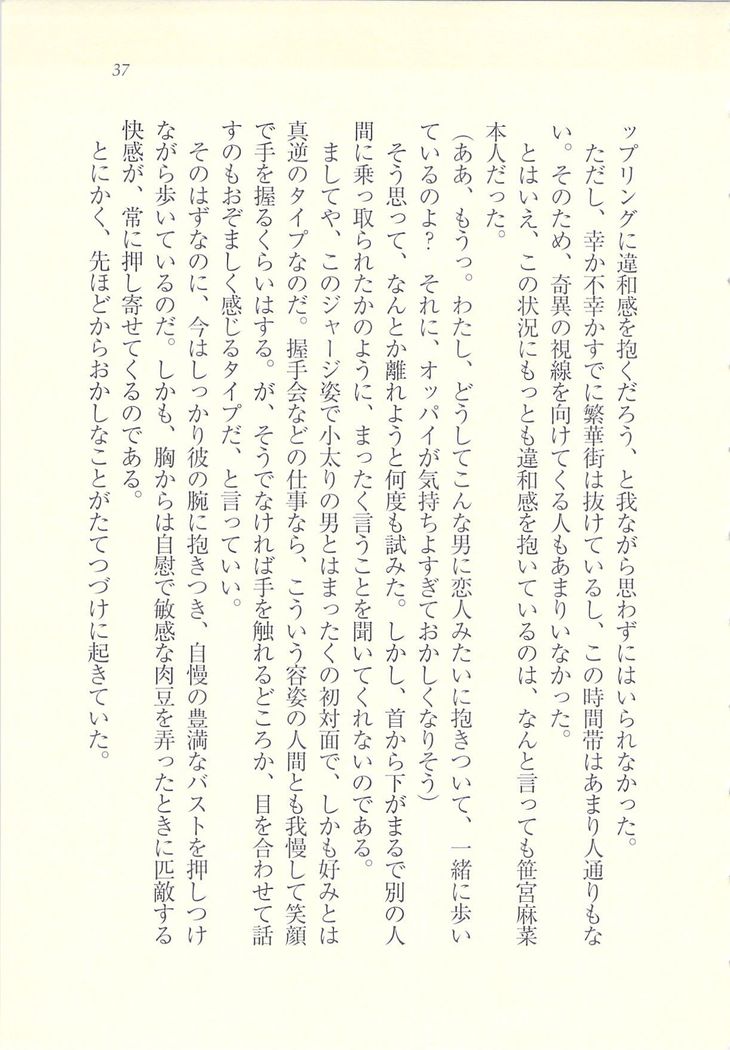 37
ップリングに違和感を抱くだろう、と我ながら思わずにはいられなかった。
ただし、幸か不幸かすでに繁華街は抜けているし、この時間帯はあまり人通りもな
い。そのため、奇異の視線を向けてくる人もあまりいなかった。
とはいえ、この状況にもっとも違和感を抱いているのは、なんと言っても笹宮麻菜
本人だった。
（ああ、もうっ。わたし、どうしてこんな男に恋人みたいに抱きついて、一緒に歩い
ているのよ？　それに、オッパイが気持ちよすぎておかしくなりそう）
そう思って、なんとか離れようと何度も試みた。しかし、首から下がまるで別の人
間に乗っ取られたかのように、まったく言うことを聞いてくれないのである。
ましてや、このジャージ姿で小太りの男とはまったくの初対面で、しかも好みとは
真逆のタイプなのだ。握手会などの仕事なら、こういう容姿の人間とも我慢して笑顔
で手を握るくらいはする。が、そうでなければ手を触れるどころか、目を合わせて話
すのもおぞましく感じるタイプだ、と言っていい。
そのはずなのに、今はしっかり彼の腕に抱きつき、自慢の豊満なバストを押しつけ
ながら歩いているのだ。しかも、胸からは自慰で敏感な肉豆を弄ったときに匹敵する
快感が、常に押し寄せてくるのである。
とにかく、先ほどからおかしなことがたてつづけに起きていた。